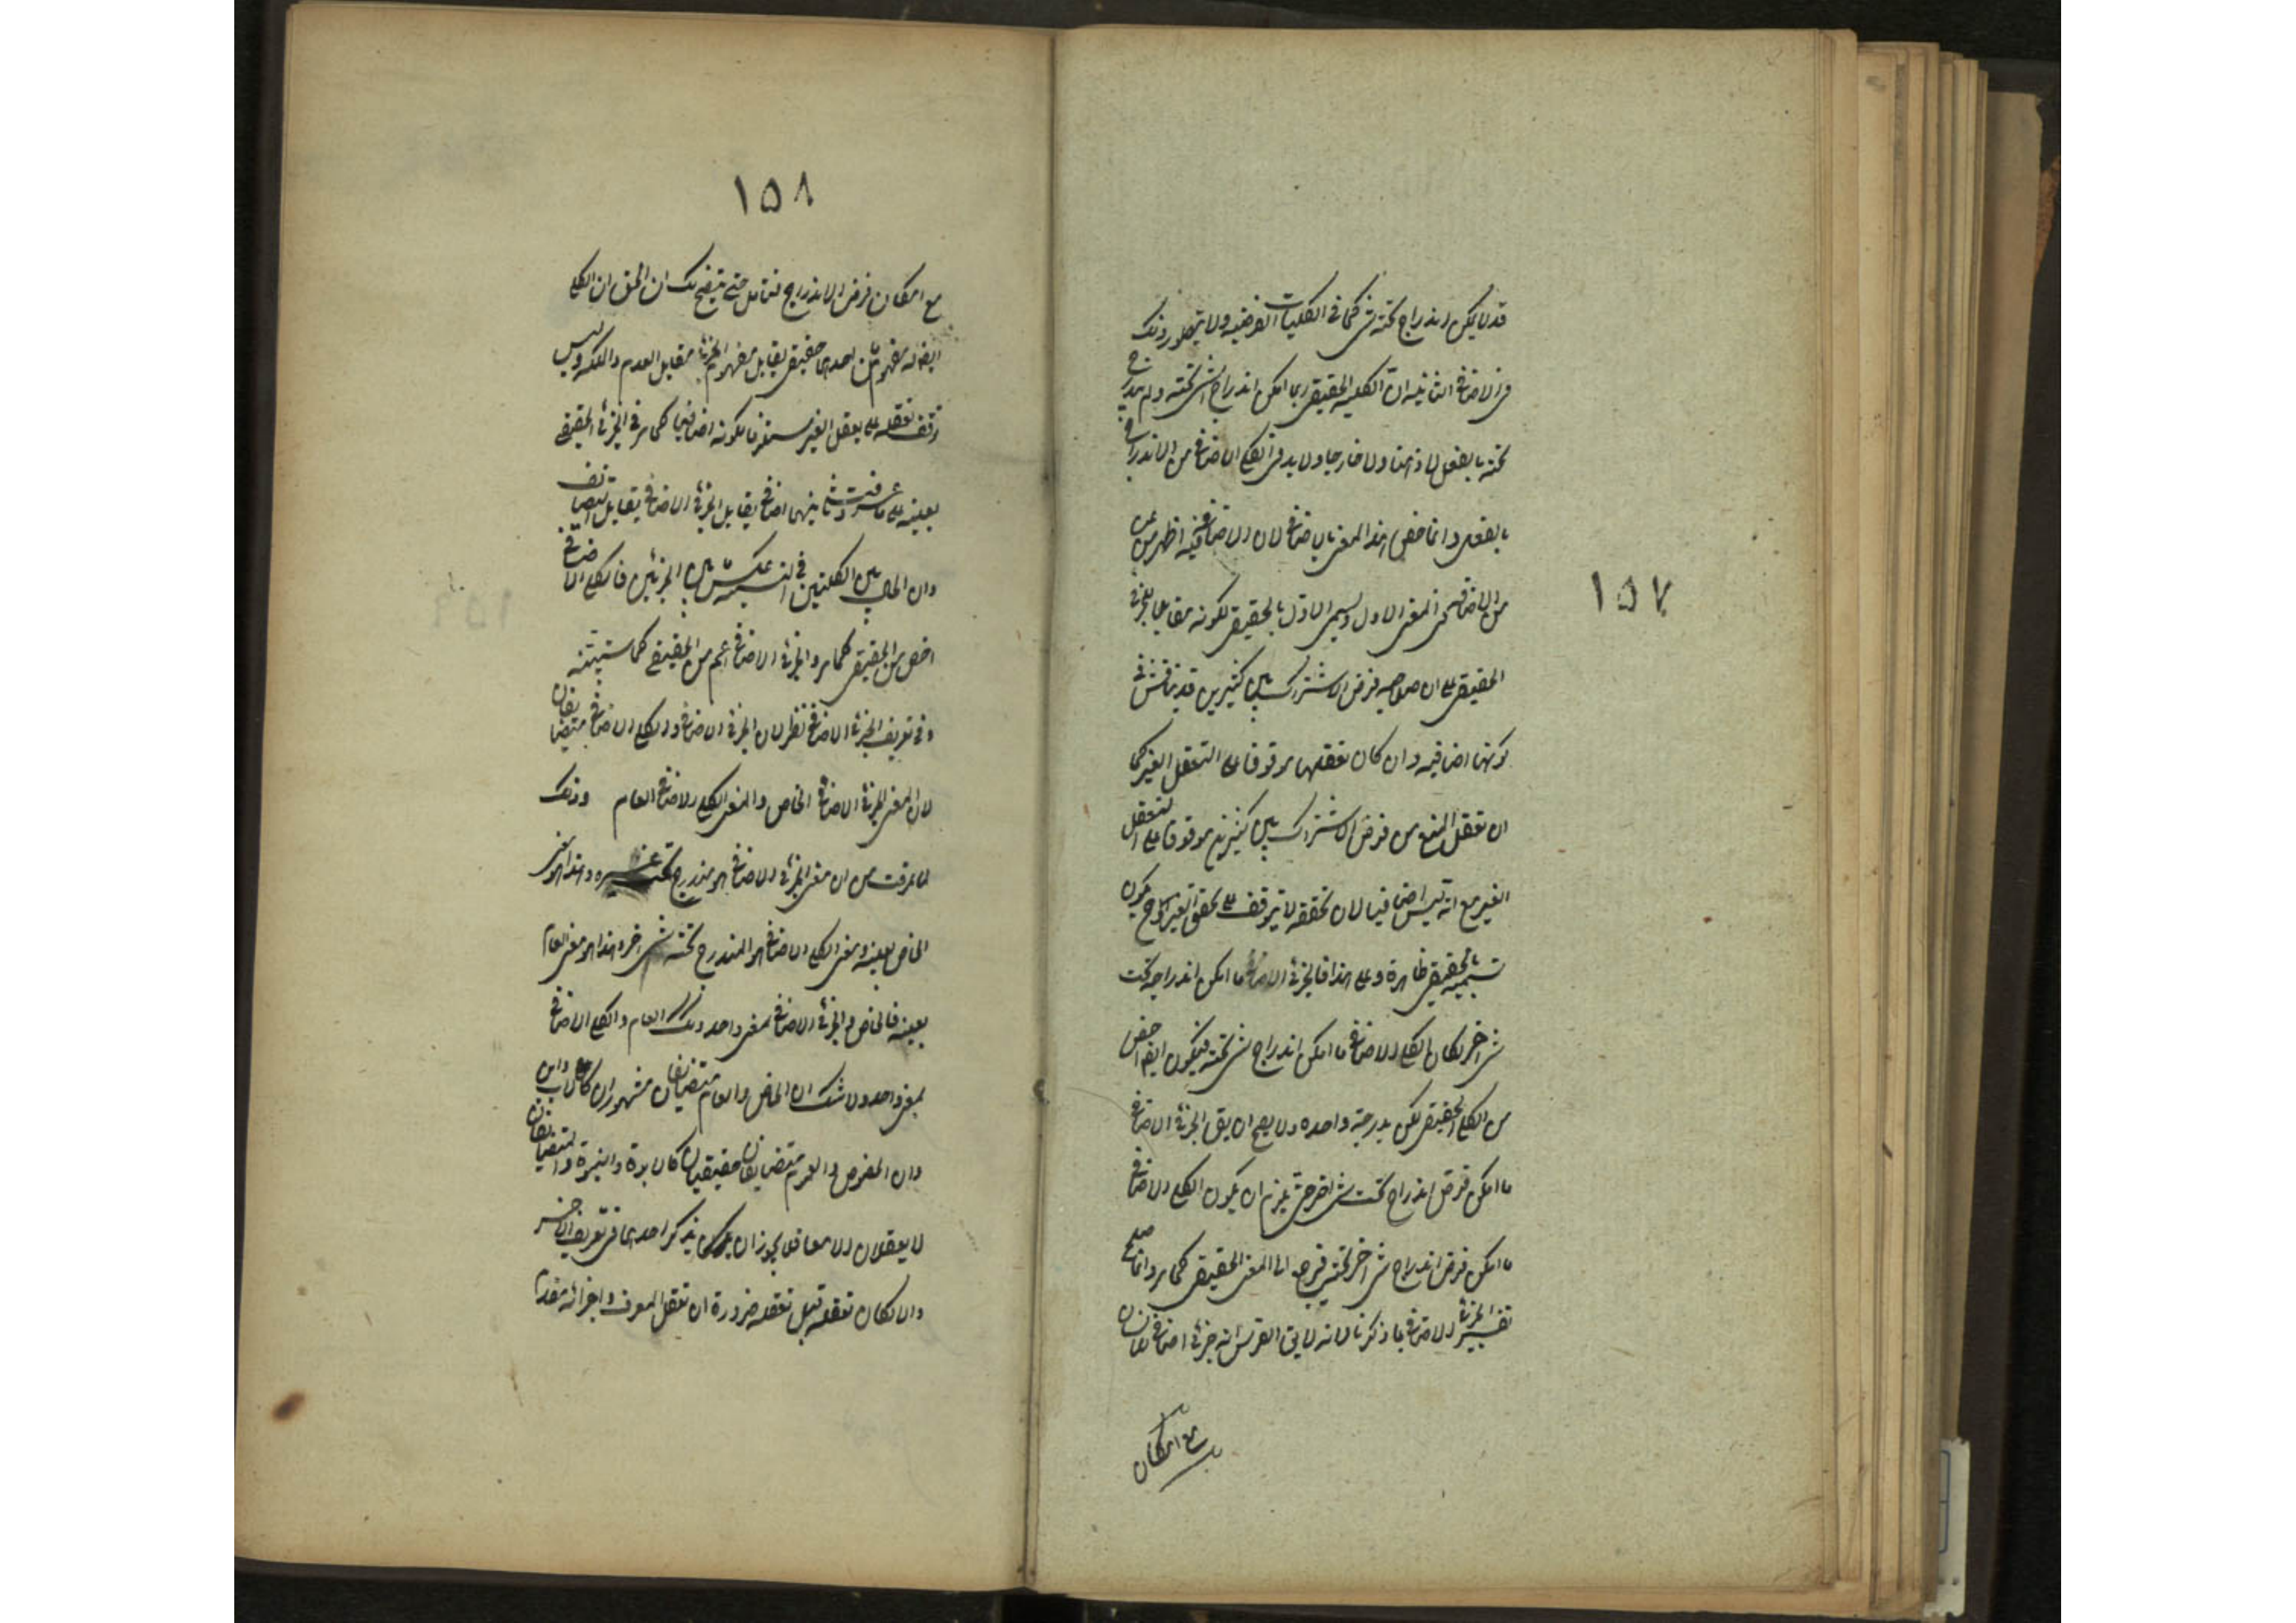 ١٥٧
قد لا يمكن اندراج تحته شئ كما في الكليات الفرضيه ولا يتصور ذلك
في الاضافى الثانيه ان الكليه الحقيقى ربما امكن اندراج الشئ تحته ولم يندرج
تحته بالفعل لا ذهنا ولا خارجا ولا بد في الكلى الاضافى من الاندراج
بالفعل وانما خص هذا المعنى بالاضافى لان الاضافة فيه اظهر من
من الاضافه فى المعنى الاول ويسمى الاول بالحقيقى لكونه مقابلا للجزئى
الحقيقى على ان صلاحيه فرض الاشتراك بين كثيرين قد يناقش فى
كونها اضافيه وان كان تعقلها موقوفا على التعقل الغير كما
ان تعقل المنع من فرض الاشتراك بين كثيرين موقوف على التعقل
الغير مع انه ليس اضافيا لان تحققه لا يتوقف على تحقق الغير وح يكون
تسميته بالحقيقى ظاهرة وعلى هذا فالجزئى الاضافى ما امكن اندراجه تحت
شئ اخر لكان الكلى الاضافى ما امكن اندراج شئ تحته فيكون ايضا اخص
من الكلى الحقيقى لكن بدرجة واحده ولا يصح ان يق الجزئى الاضافى
ما امكن فرض اندراج تحت شئ اخر حتى يلزم ان يكون الكلى الاضافى
ما امكن فرض اندراج شئ اخر تحته فيرجع الى المعنى الحقيقى كما مر وانما
تفسير الجزئى الاضافى بما ذكرنا لانه لا يق الفرس انه جزئى اضافى
مع امكان
١٥٨
مع امكان فرض الاندراج فتامل حتى يتضح لك ان الحق ان الكلى
ايضا له مفهومان احدهما حقيقى يقابل مفهوم الجزئى مقابل العدم والملكه وليس
توقف تعقله على تعقل الغير مستلزما لكونه اضافيا كما مر فى الجزئى الحقيقى
بعينه على ما عرفت وثانيهما اضافى يقابل الجزئى الاضافى تقابل التضايف
وان الحال بين الكليتين فى النسبة عكس ما بين الجزئيين فالكلى الاضافى
اخص من الحقيقى كما مر والجزئى الاضافى اعم من الحقيقى كما ستبينه
وفى تعريف الجزئى الاضافى نظر لان الجزئى الاضافى والكلى الاضافى متضايفان
لان المعنى الجزئى الاضافى الخاص والمعنى الكلى الاضافى العام وذلك
لما عرفت من ان معنى الجزئى الاضافى هو مندرج تحت غيره وهذا هو معنى
الخاص بعينه ومعنى الكلى الاضافى هو المندرج تحته شئ اخر وهذا هو معنى العام
بعينه فالخاص والجزئى الاضافى بمعنى واحد وكذلك العام والكلى الاضافى
بمعنى واحد ولا شك ان الخاص والعام متضايفان مشهوران كالاب والابن
وان الخصوص والعموم متضايفان حقيقيان كالابوة والبنوة والمتضايفان
لا يعقلان الا معا فلا يجوز ان يذكر احدهما فى تعريف الاخر
والا لكان تعقله قبل تعقله ضرورة ان تعقل المعرف واجزائه مقدم